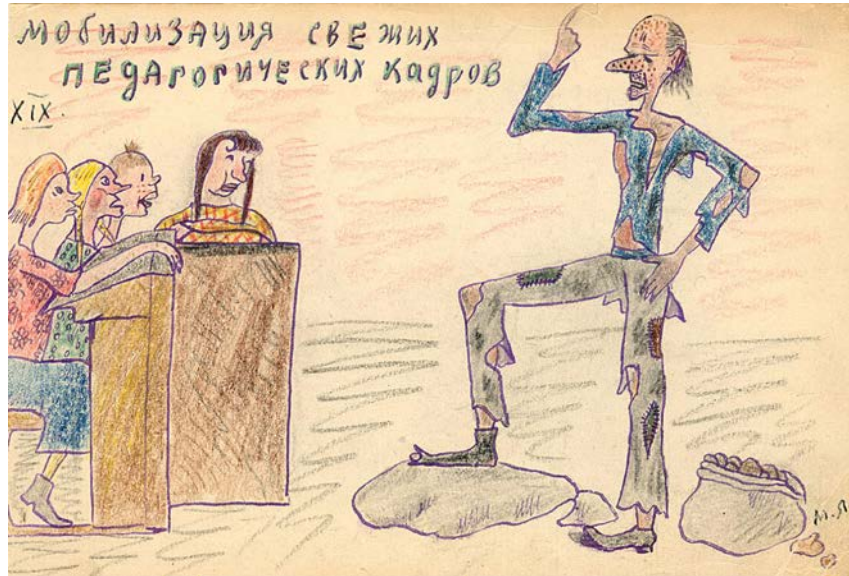 МОБИЛИЗАЦИЯ СВЕЖИХ
ПЕДАГОГИЧЕСКИХ КАДРОВ
XIX.
М.Я